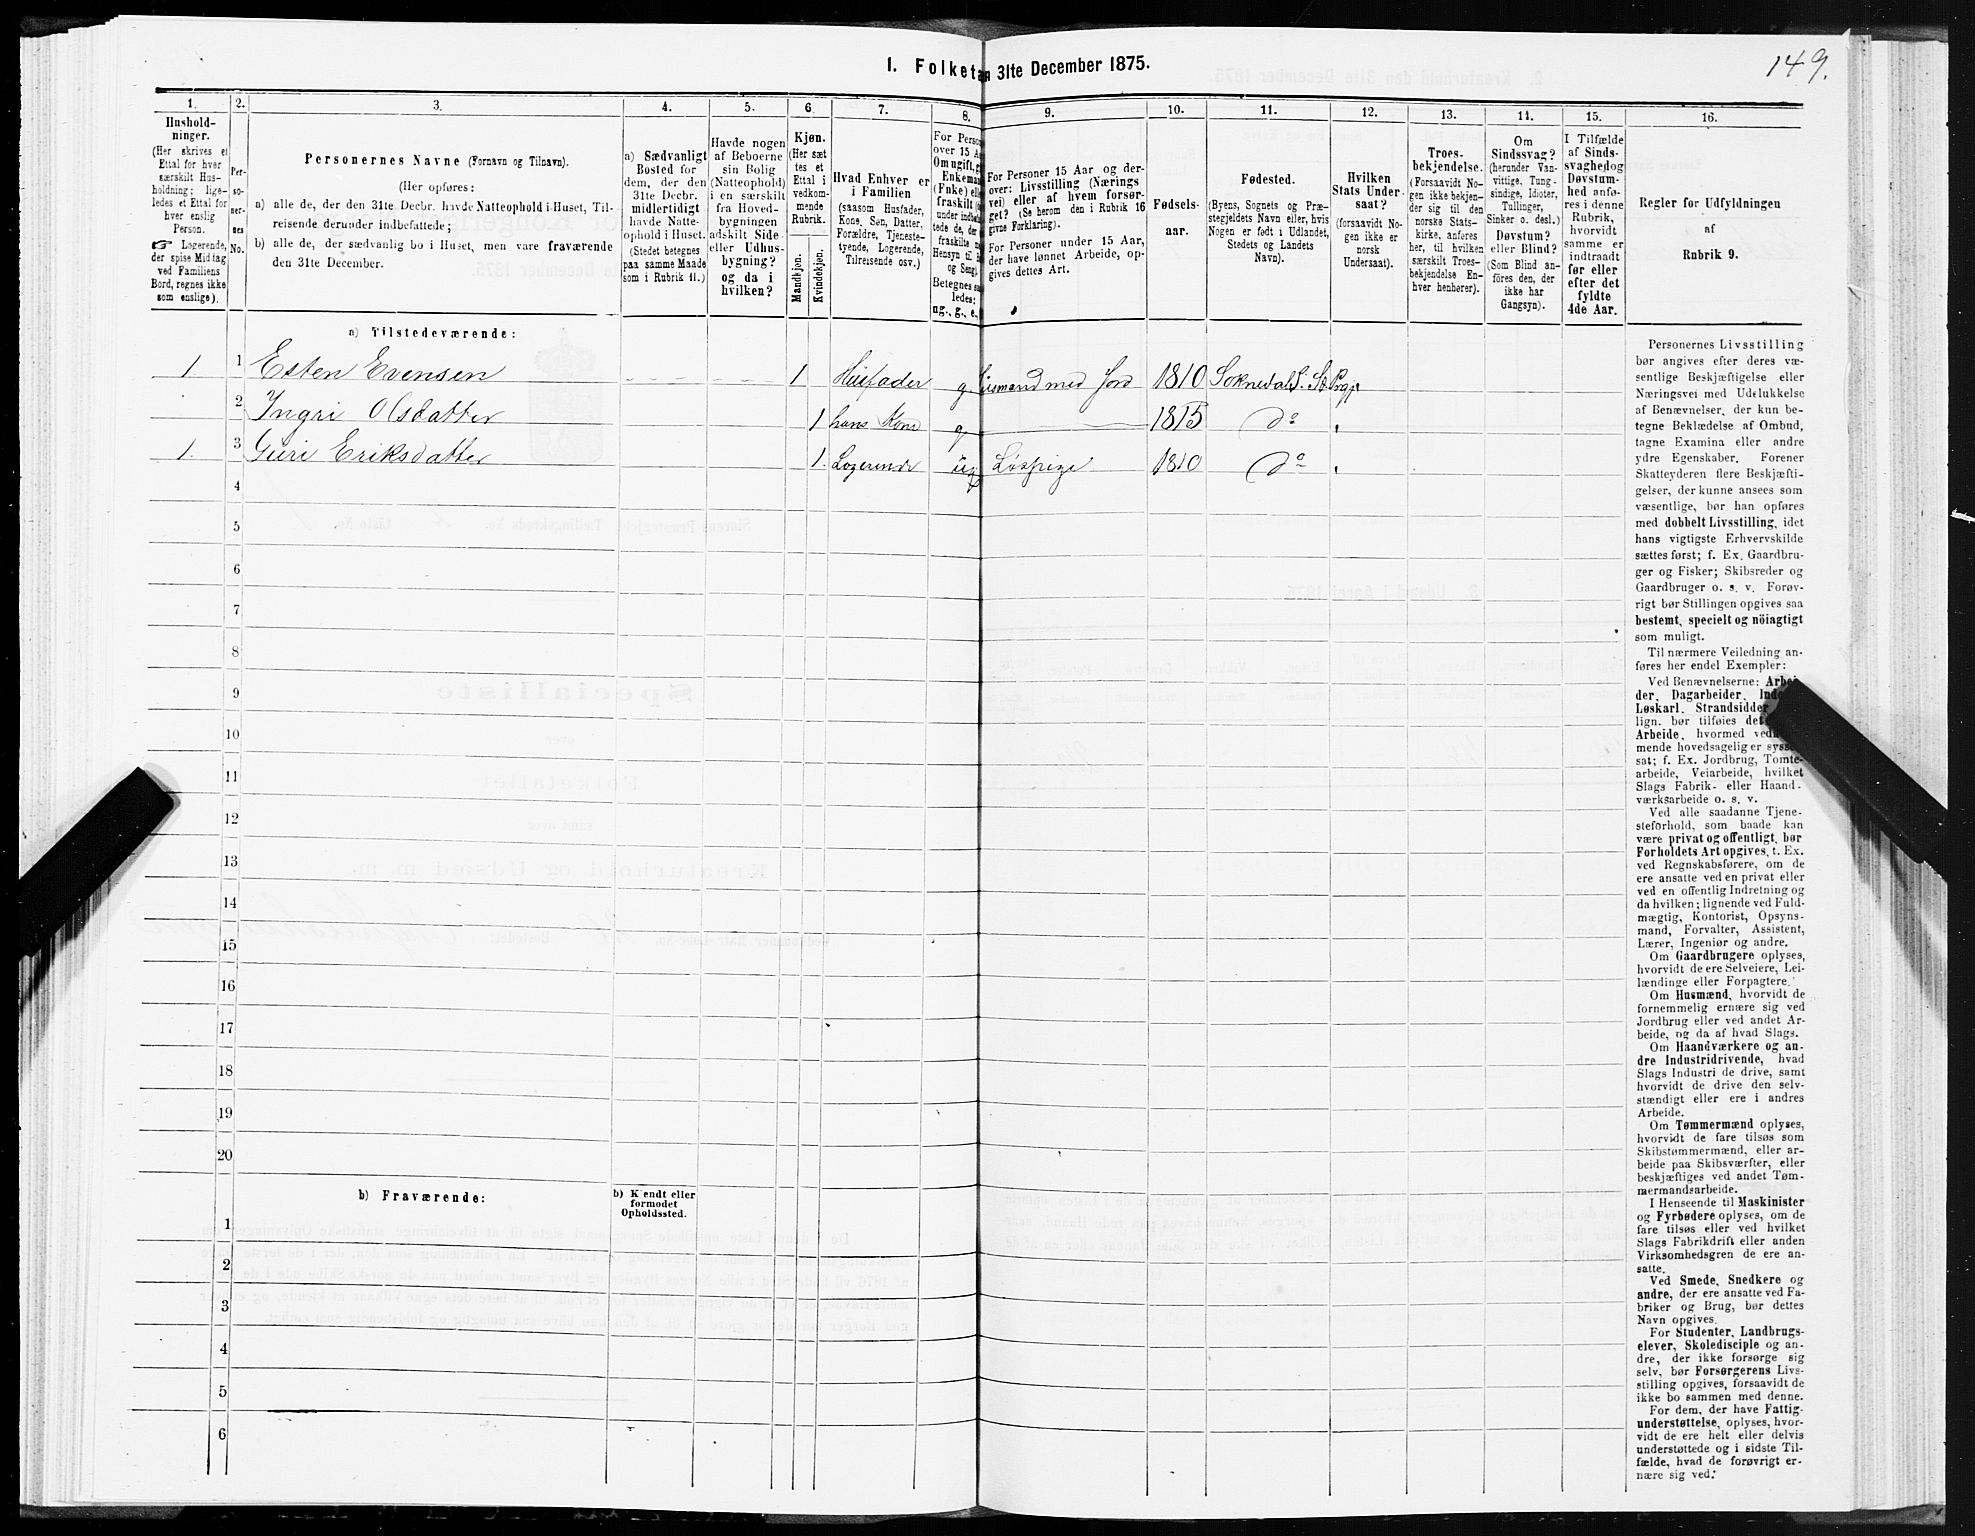 149.
I. Folketa n 31te December 1875.
1. 2. 3. 4. 5. 6. 7. 8. 9. 10. 11. 12. 13. 14. 15. 16.
Hushold-
ninger.
(Her skrives et
Ettal for hver
særskilt Hus-
holdning; lige-
ledes et Ettal for
hver enslig
Person.
☞ Logerende,
der spise Middag
ved Familiens
Bord, regnes ikke
som enslige).
Per-
so-
ner-
nes
No.
Personernes Navne (Fornavn og Tilnavn).
(Her opføres:
a) alle de, der den 31te Decbr. havde Natteophold i Huset, Til-
reisende derunder indbefattede;
b) alle de, der sædvanlig bo i Huset, men vare fraværende
den 31te December.
a) Sædvanligt
Bosted for
dem, der den
31te Decbr.
midlertidigt
havde Natte-
ophold i Huset.
(Stedet betegnes
paa samme Maade
som i Rubrik 11.)
Havde nogen
af Beboerne
sin Bolig
(Natteophold)
i en særskilt
fra Hoved-
bygningen
adskilt Side-
eller Udhus-
bygning?
og da i
hvilken?
Kjøn.
(Her sæt-
tes et
Ettal i
vedkom-
mende
Rubrik.
Mandkjøn.
Kvindekjøn.
Hvad Enhver er
i Familien
(saasom Husfader,
Kone, Søn, Datter,
Forældre, Tjeneste-
tyende, Logerende,
Tilreisende osv.)
For Perso
over 15 A
Om ugift, g
Enkema
(Fnke) ell
fraskilt (
under indbe
tede de, der
fraskilte
Hensyn til
og Seng).
Betegnes s
ledes:
ug., g., e.,
For Personer 15 Aar og der-
over: Livsstilling (Nærings
vei) eller af hvem forsør-
get? (Se herom den i Rubrik 16
givne Forklaring).
For Personer under 15 Aar,
der have lønnet Arbeide, op-
gives dettes Art.
Fødsels-
aar.
Fødested.
(Byens, Sognets og Præ-
stegjeldets Navn eller, hvis
Nogen er født i Udlandet,
Stedets og Landets
Navn).
Hvilken
Stats Under-
saat?
(forsaavidt No-
gen ikke er
norsk
Undersaat).
Troes-
bekjendelse.
(Forsaavidt No-
gen ikke bekjen-
der sig til den
norske Stats-
kirke, anføres
her, til hvilken
særskilt Troes-
bekjendelse En-
hver henhører).
Om
Sindssvag?
(herunder Van-
vittige, Tung-
sindige, Idioter,
Tullinger,
Sinker o. desl.)
Døvstum?
eller Blind?
(Som Blind an-
føres den, der
ikke har
Gangsyn).
I Tilfælde
af Sinds-
svaghed og
Døvstum-
hed anfø-
res i denne
Rubrik,
hvorvidt
samme er
indtraadt
før eller
efter det
fyldte
4de Aar.
Regler for Udfyldningen
af
Rubrik 9.
a) Tilstedeværende:
1 1 Esten Evensen 1 Husfader g. Husmand med Jord 1810 Soknedal S. St. Prgj.
2 Ingri Olsdatter 1 hans Kone g 1815 do
1 3 Guri Eriksdatter 1. Logerende ug Løspige 1810 do
4
5
6
7
8
9
10
11
12
13
14
15
16
17
18
19
20
b) Fraværende:
b) Kjendt eller
formodet
Opholdssted.
1
2
3
4
5
6
Personernes Livsstilling
bør angives efter deres væ-
sentlige Beskjæftigelse eller
Næringsvei med Udelukkelse
af Benævnelser, der kun be-
tegne Beklædelse af Ombud,
tagne Examina eller andre
ydre Egenskaber. Forener
Skatteyderen flere Beskjæfti-
gelser, der kunne ansees som
væsentlige, bør han opføres
med dobbelt Livsstilling, idet
hans vigtigste Erhvervskilde
sættes først; f. Ex. Gaardbru-
ger og Fisker; Skibsreder og
Gaardbruger o. s. v. Forøv-
rigt bør Stillingen opgives saa
bestemt, specielt og nöiagtigt
som muligt.
Til nærmere Veiledning an-
føres her endel Exempler:
Ved Benævnelserne: Arbei-
der, Dagarbeider, Inde
Løskarl, Strandsidder
lign. bør tilføies det
Arbeide, hvormed ved
mende hovedsagelig er syssel
sat; f. Ex. Jordbrug, Tomte-
arbeide, Veiarbeide, hvilket
Slags Fabrik- eller Haand-
værksarbeide o. s. v.
Ved alle saadanne Tjene-
steforhold, som baade kan
være privat og offentligt, bør
Forholdets Art opgives, t. Ex.
ved Regnskabsførere, om de
ere ansatte ved en privat eller
ved en offentlig Indretning og
da hvilken; lignende ved Fuld-
mægtig, Kontorist, Opsyns-
mand, Forvalter, Assistent,
Lærer, Ingeniør og andre.
Om Gaardbrugere oplyses,
hvorvidt de ere Selveiere, Lei-
lændinge eller Forpagtere.
Om Husmænd, hvorvidt de
fornemmelig ernære sig ved
Jordbrug eller ved andet Ar-
beide, og da af hvad Slags.
Om Haandværkere og an-
dre Industridrivende, hvad
Slags Industri de drive, samt
hvorvidt de drive den selv-
stændigt eller ere i andres
Arbeide.
Om Tømmermænd oplyses,
hvorvidt de fare tilsøs som
Skibstømmermænd, eller ar-
beide paa Skibsværfter, eller
beskjæftiges ved andet Tøm-
mermandsarbeide.
I Henseende til Maskinister
og Fyrbødere oplyses, om de
fare tilsøs eller ved hvilket
Slags Fabrikdrift eller anden
Virksomhedsgren de ere an-
satte.
Ved Smede, Snedkere og
andre, der ere ansatte ved Fa-
briker og Brug, bør dettes
Navn opgives.
For Studenter, Landbrugs-
elever, Skoledisciple og an-
dre, der ikke forsørge sig
selv, bør Forsørgerens Livs-
stilling opgives, forsaavidt de
ikke bo sammen med denne.
For dem, der have Fattig-
understøttelse, oplyses, hvor-
vidt de ere helt eller delvis
understøttede og i sidste Til-
fælde, hvad de forøvrigt er-
nære sig ved.